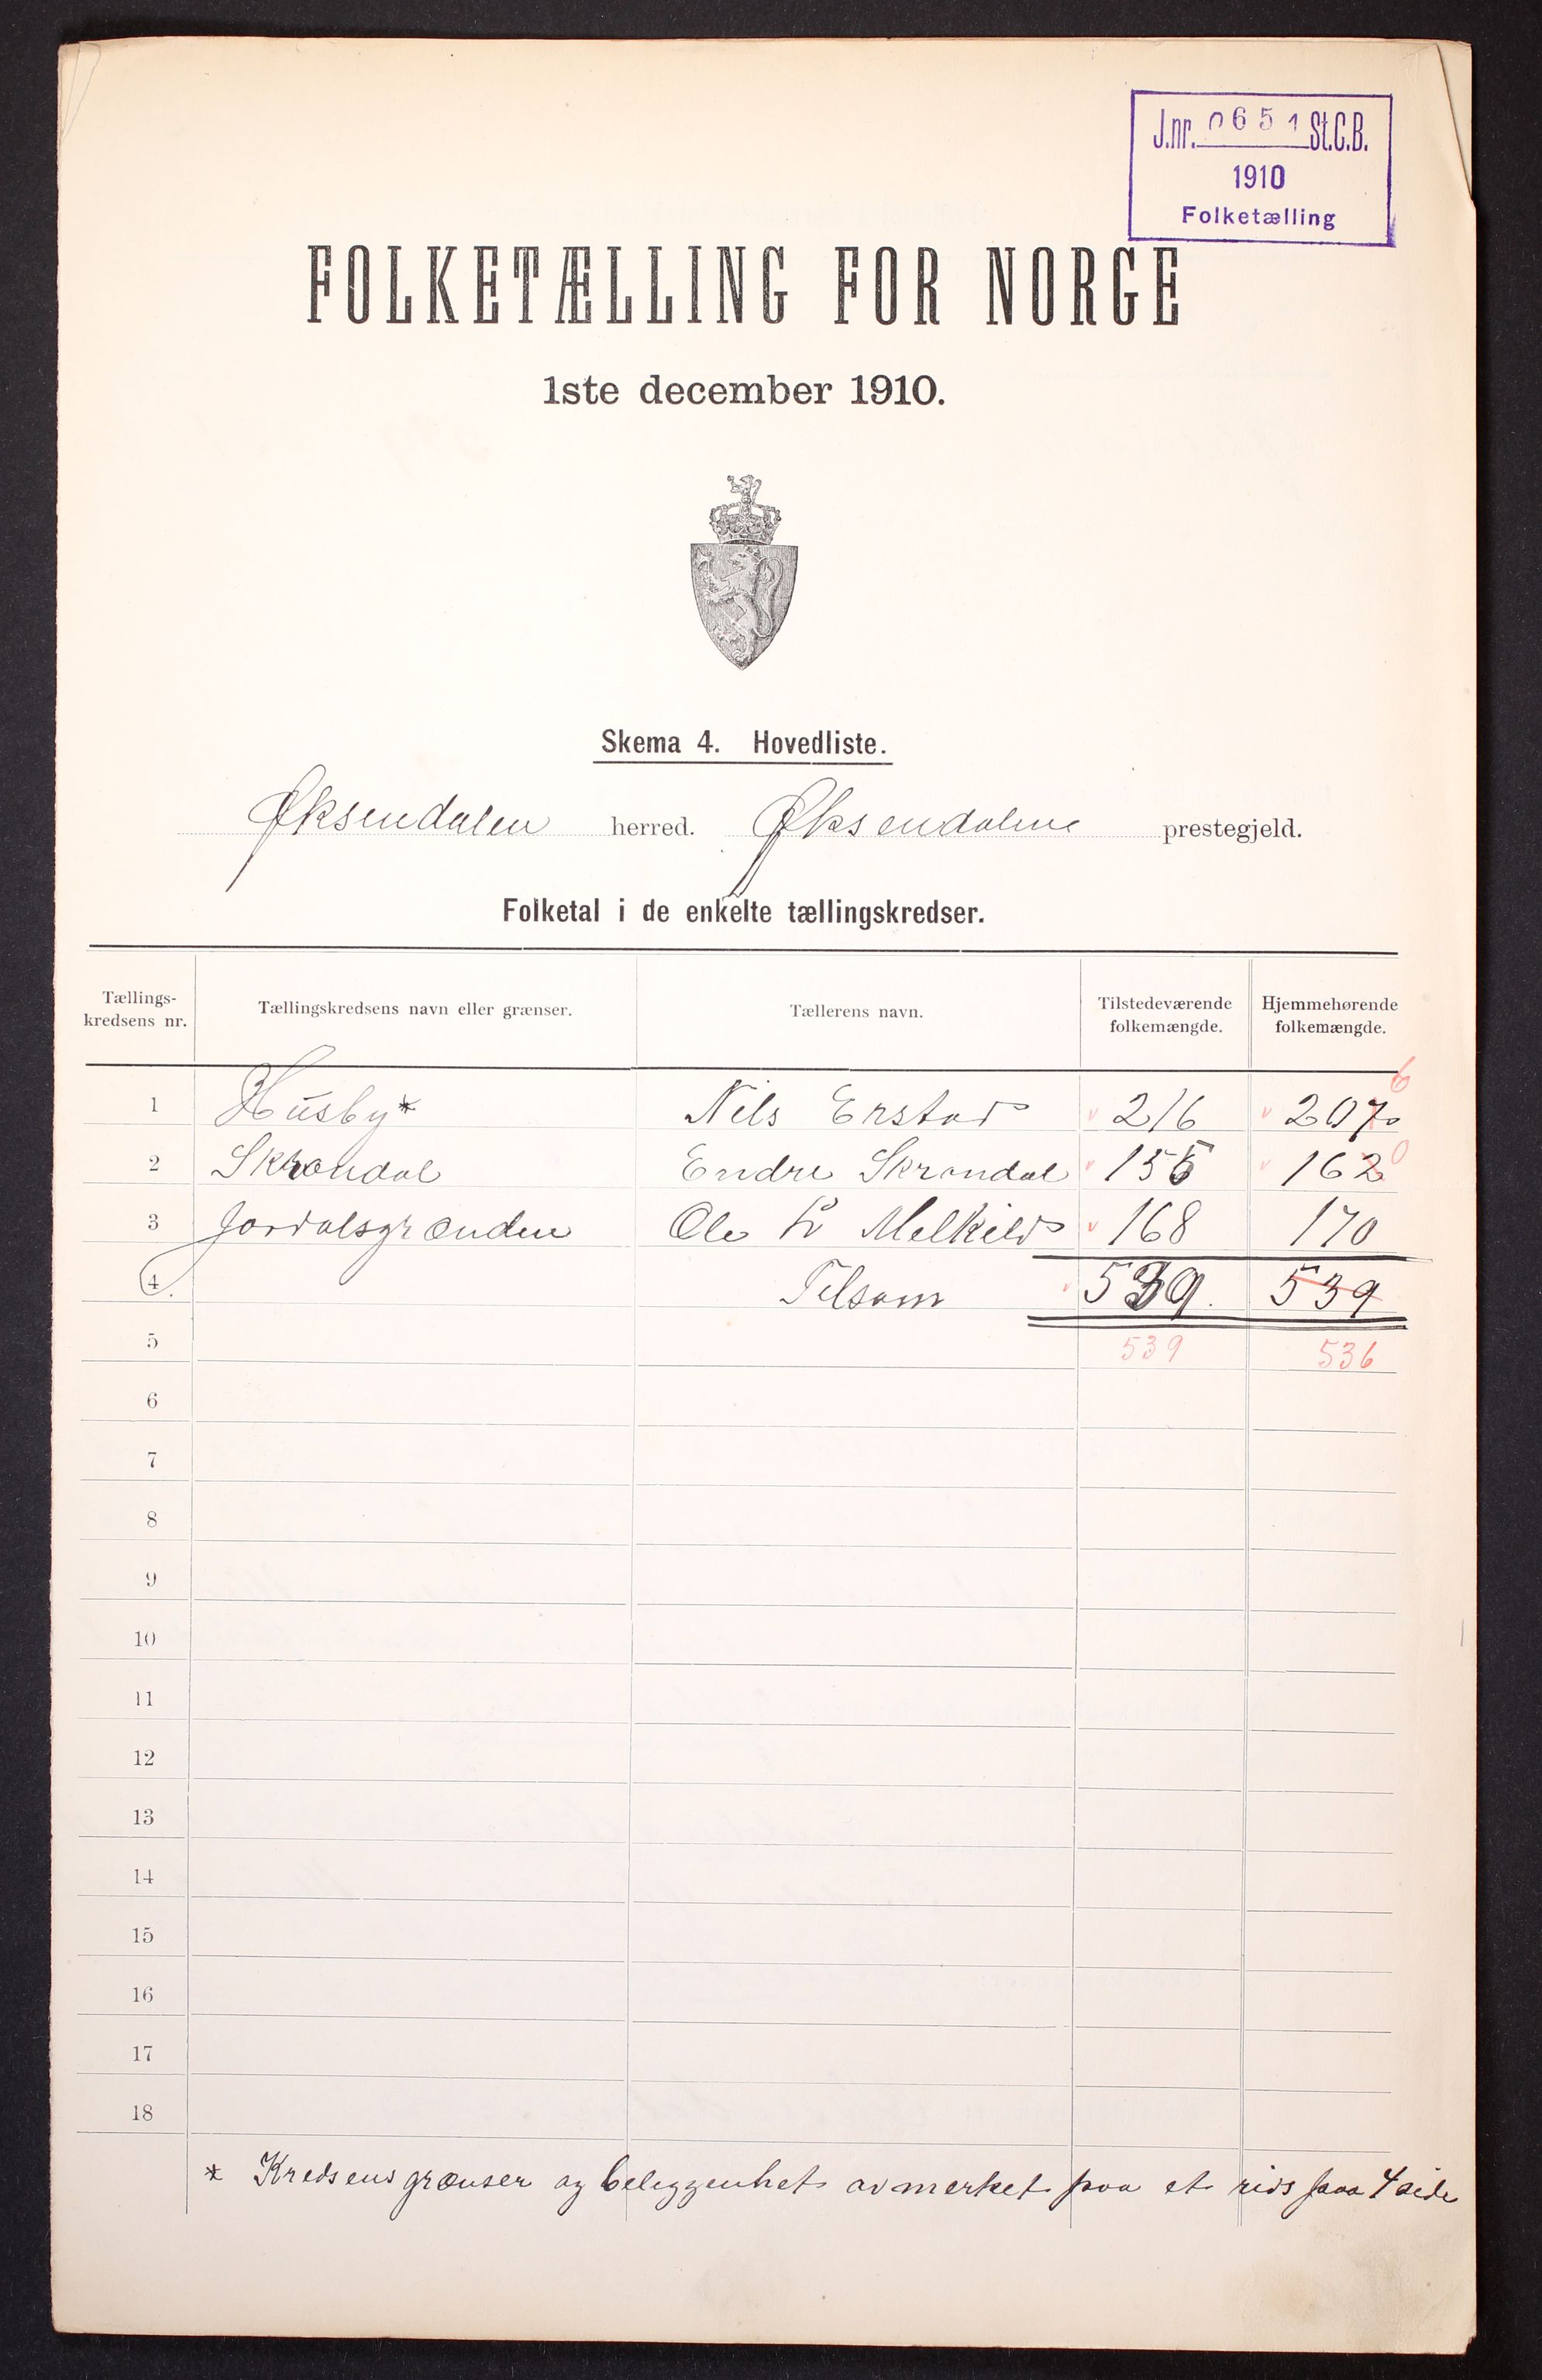 J.nr. 0651 St.C.B.
1910
Folketælling
FOLKETÆLLING FOR NORGE
1ste december 1910.
Skema 4. Hovedliste.
Øksendalen herred. Øksendalens prestegjeld.
Folketal i de enkelte tællingskredser.
Tællings-kredsens nr. Tællingskredsens navn eller grænser. Tællerens navn. Tilstedeværende folkemængde. Hjemmehørende folkemængde.
6
1 Husby* Nils Erstad 216 207
2 Skrondal Endre Skrondal 155 162 0
3 Jordalsgrænden Ole Melkild 168 170
4 Tilsam 539. 539
5 539 536
6
7
8
9
10
11
12
13
14
15
16
17
18
* Kredsens grænser og beliggenhet avmerket paa et rids paa 4 side